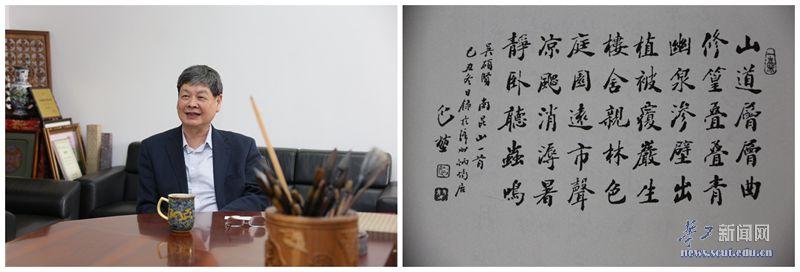 山道層層曲
修篁叠叠青
幽泉滲壁出
植被覆巖生
樓舍親林色
庭園遠市聲
凉颸消溽暑
靜卧聽蟲鳴
吳碩賢 南昆山一首
己丑冬日
华工新闻网
news.scut.edu.cn